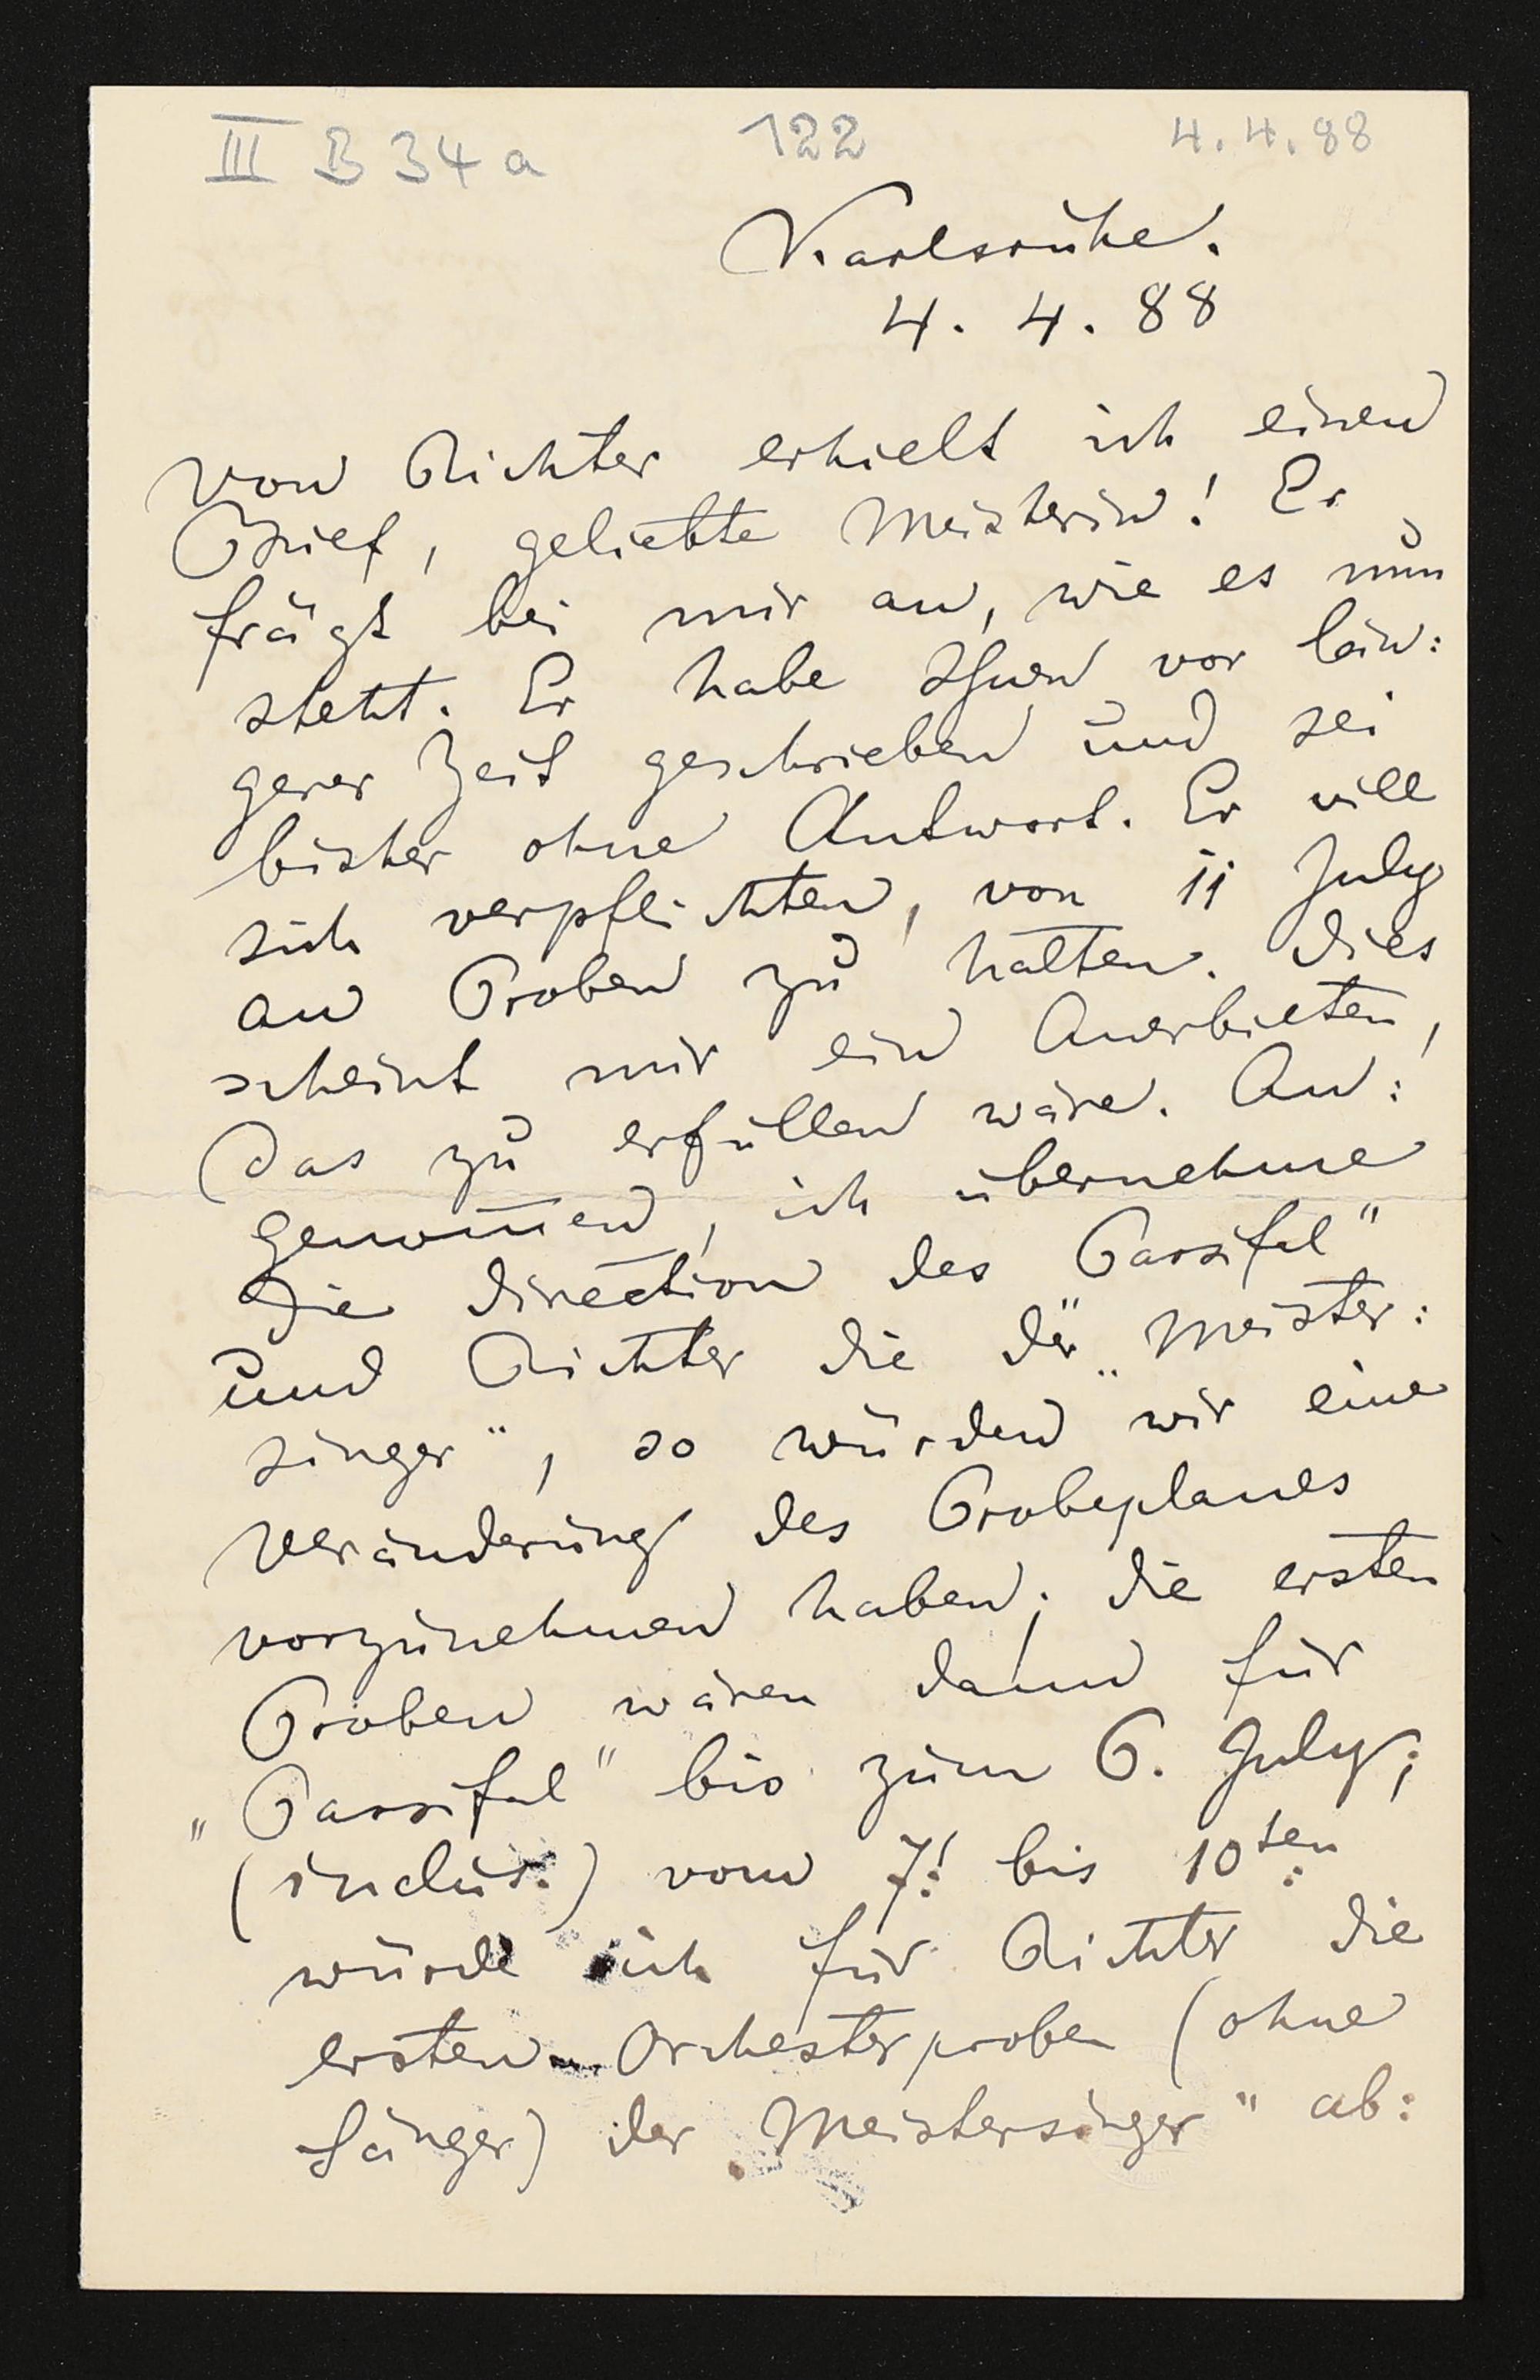 III B 34 a 122 4.4.88
Karlsruhe.
4. 4. 88
Von Richter erhielt ich einen
Brief, geliebte Meisterin! Er
frägt bei mir an, wie es nun
steht. Er habe Ihnen vor län:
gerer Zeit geschrieben und sei
bisher ohne Antwort. Er will
sich verpflichten, von 11 July
an Proben zu halten. Dies
scheint mir ein Anerbieten,
das zu erfüllen wäre. An:
genom̄en, ich übernehme
die Direction des Parsifal"
und Richter die der „Meister:
singer", so würden wir eine
Veränderung des Probeplanes
vorzunehmen haben; die ersten
Proben wären dann für
„Parsifal" bis zum 6. July;
(inclus:) vom 7t: bis 10ten:
würde ich für Richter die
ersten Orchesterproben (ohne
Sänger) der „Meistersinger" ab: